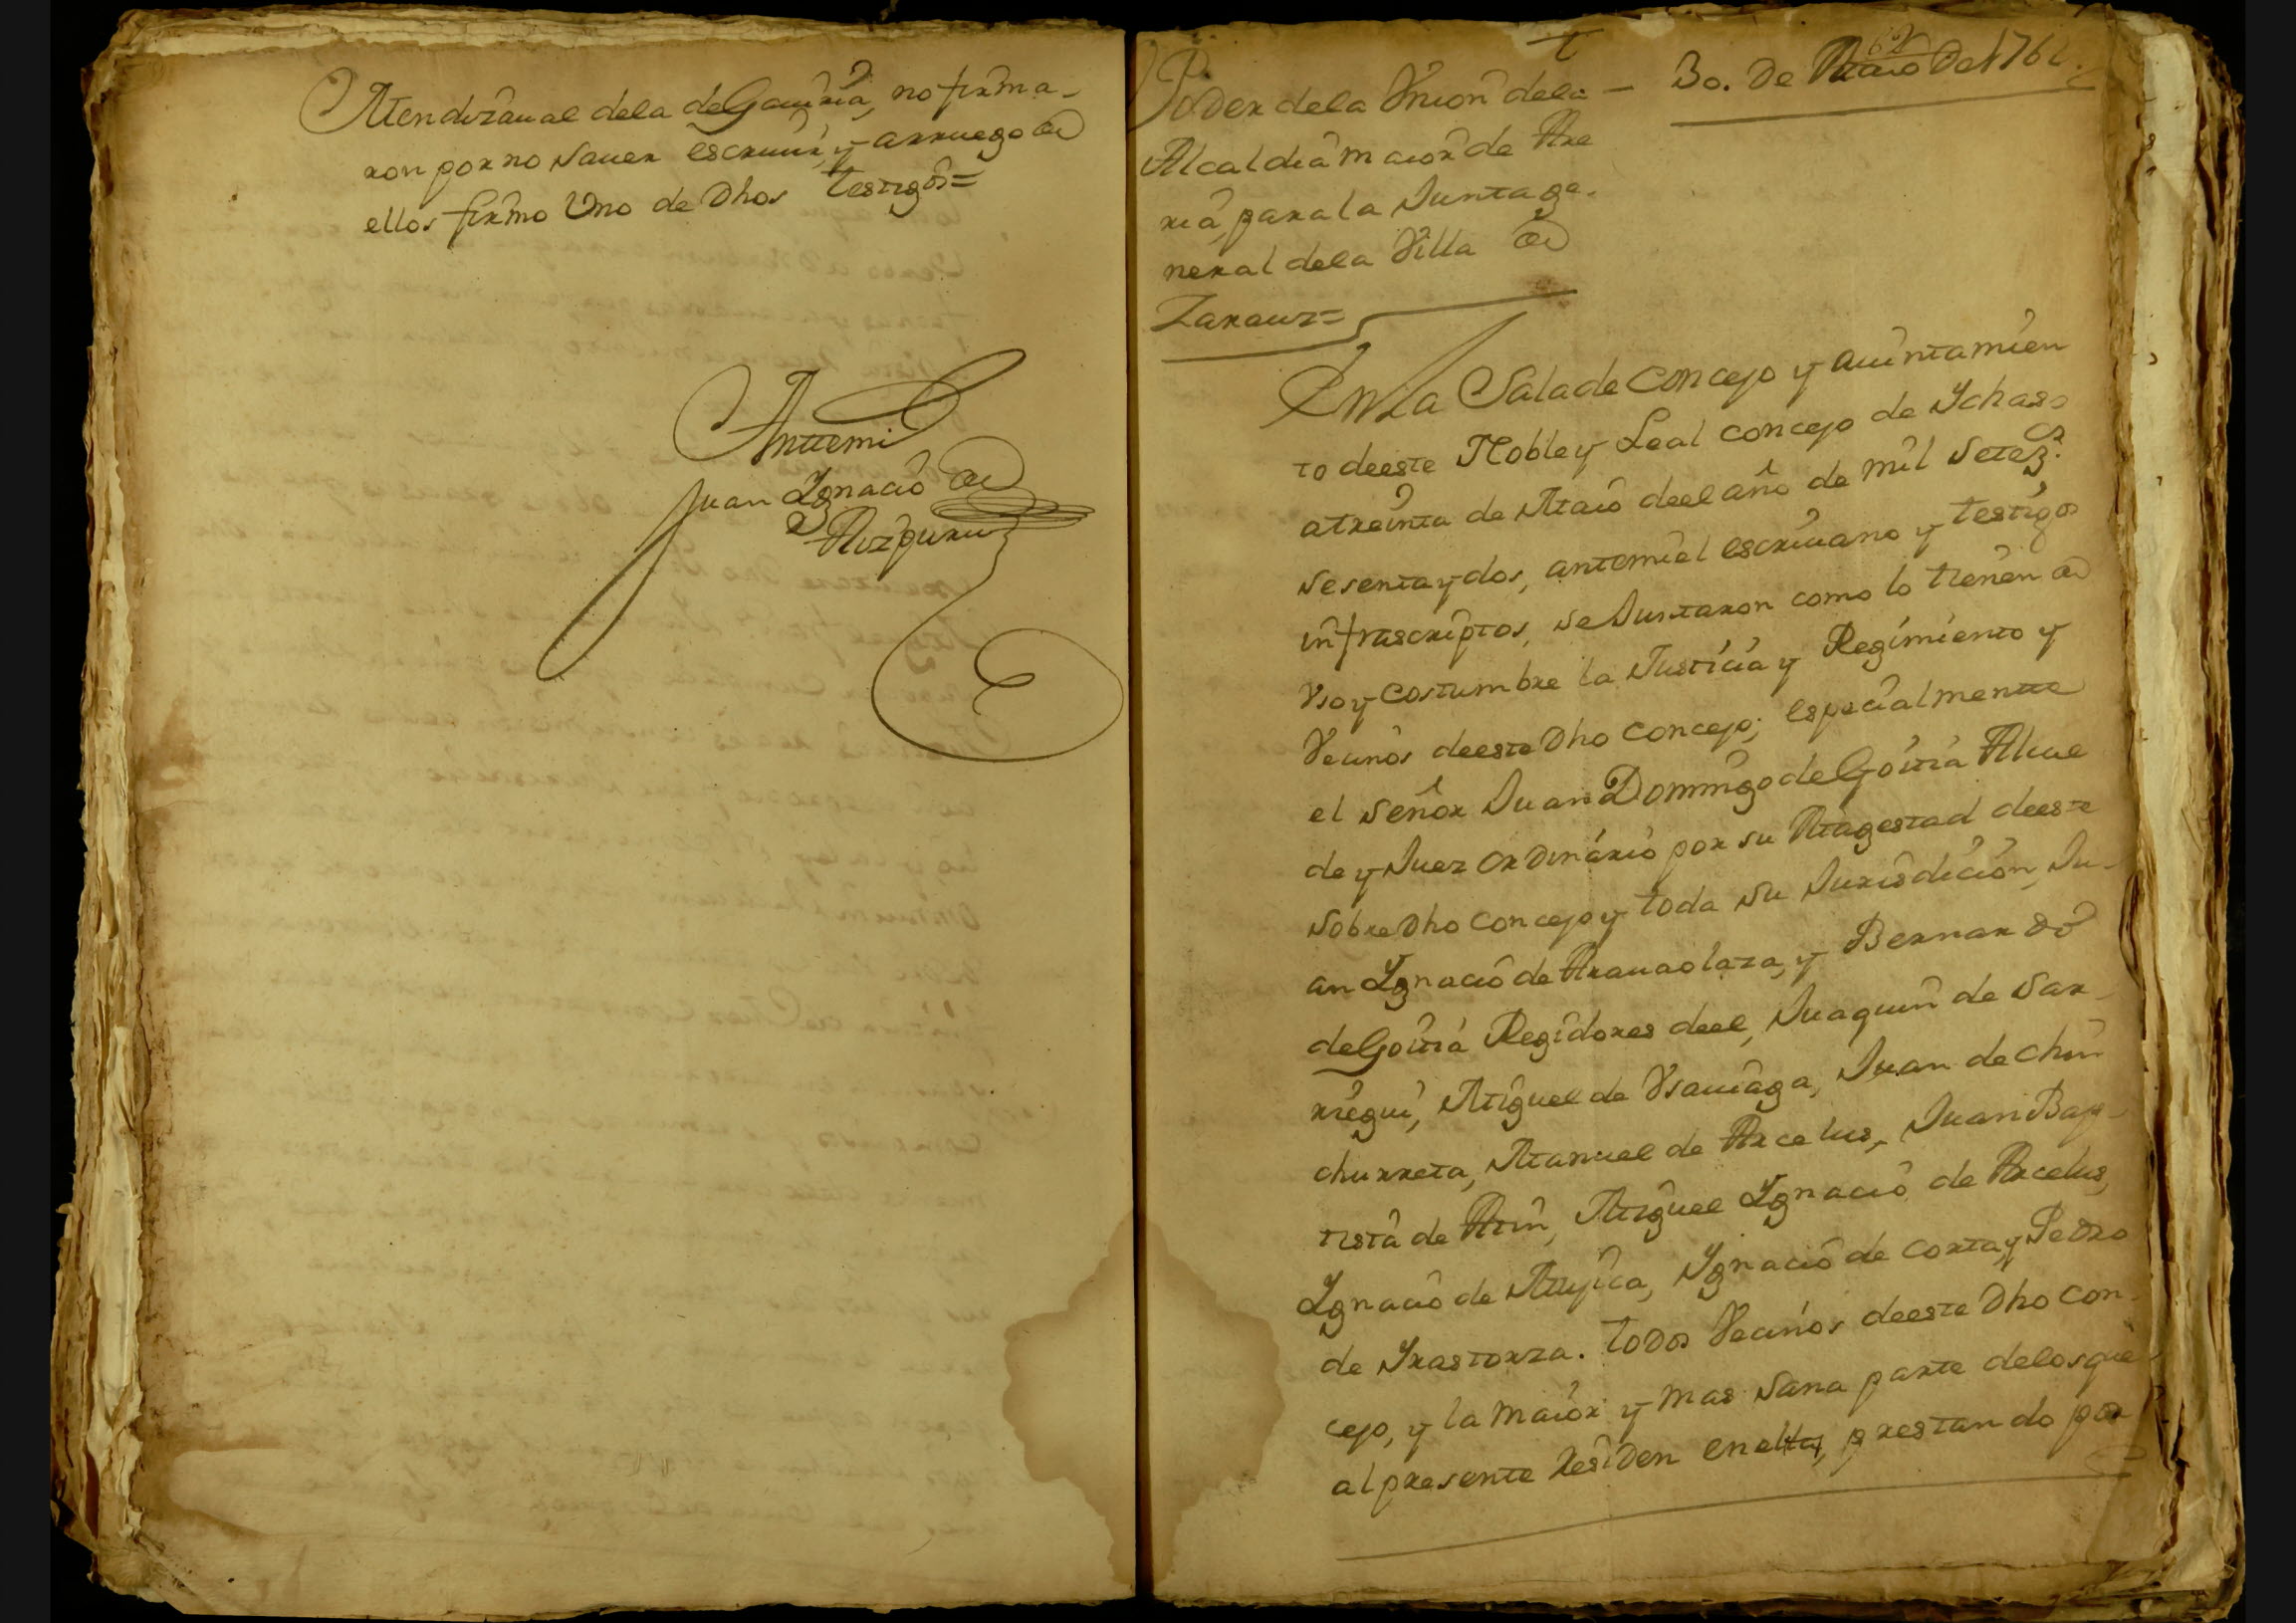 Mendizaual dela de Gauiria, no firma-
ron por no sauer escriuir, y arruego de
ellos firmo Uno de Dhos testigos=
Antemi
Juan Ygnacio de
Aizpuru
62
Poder dela Vnion dela —
Alcaldia maior de Are
ria, para la Junta ge-
neral dela Villa de
Zarauz=
30. De Maio De 1762.
En La Sala de Concejo y aiuntamien
to deeste Noble y Leal concejo de Ychaso
a treinta de Maio deel año de mil setez.s
sesenta y dos, antemi el escriuano y testigos
infrascriptos, se Juntaron como lo tienen de
Vso y costumbre la Justicia y Regimiento y
Vecinos deeste Dho concejo; especialmente
el señor Juan Domingo de Goitia Alcal
de y Juez ordinario por su Magestad deeste
sobre Dho concejo y toda su Jurisdicion, Ju-
an Ygnacio de Arauaolaza, y Bernardo
de Goitia Regidores deel, Juaquin de Sar-
riegui, Miguel de Vsauiaga, Juan de Chin
churreta, Manuel de Arcelus, Juan Bap-
tista de Atin, Miguel Ygnacio de Arcelus,
Ygnacio de Mujica, Ygnacio de Corta, y Pedro
de Yrastorza. todos Vecinos deeste Dho con-
cejo, y la maior y mas sana parte delosque
al presente residen en el, prestando por